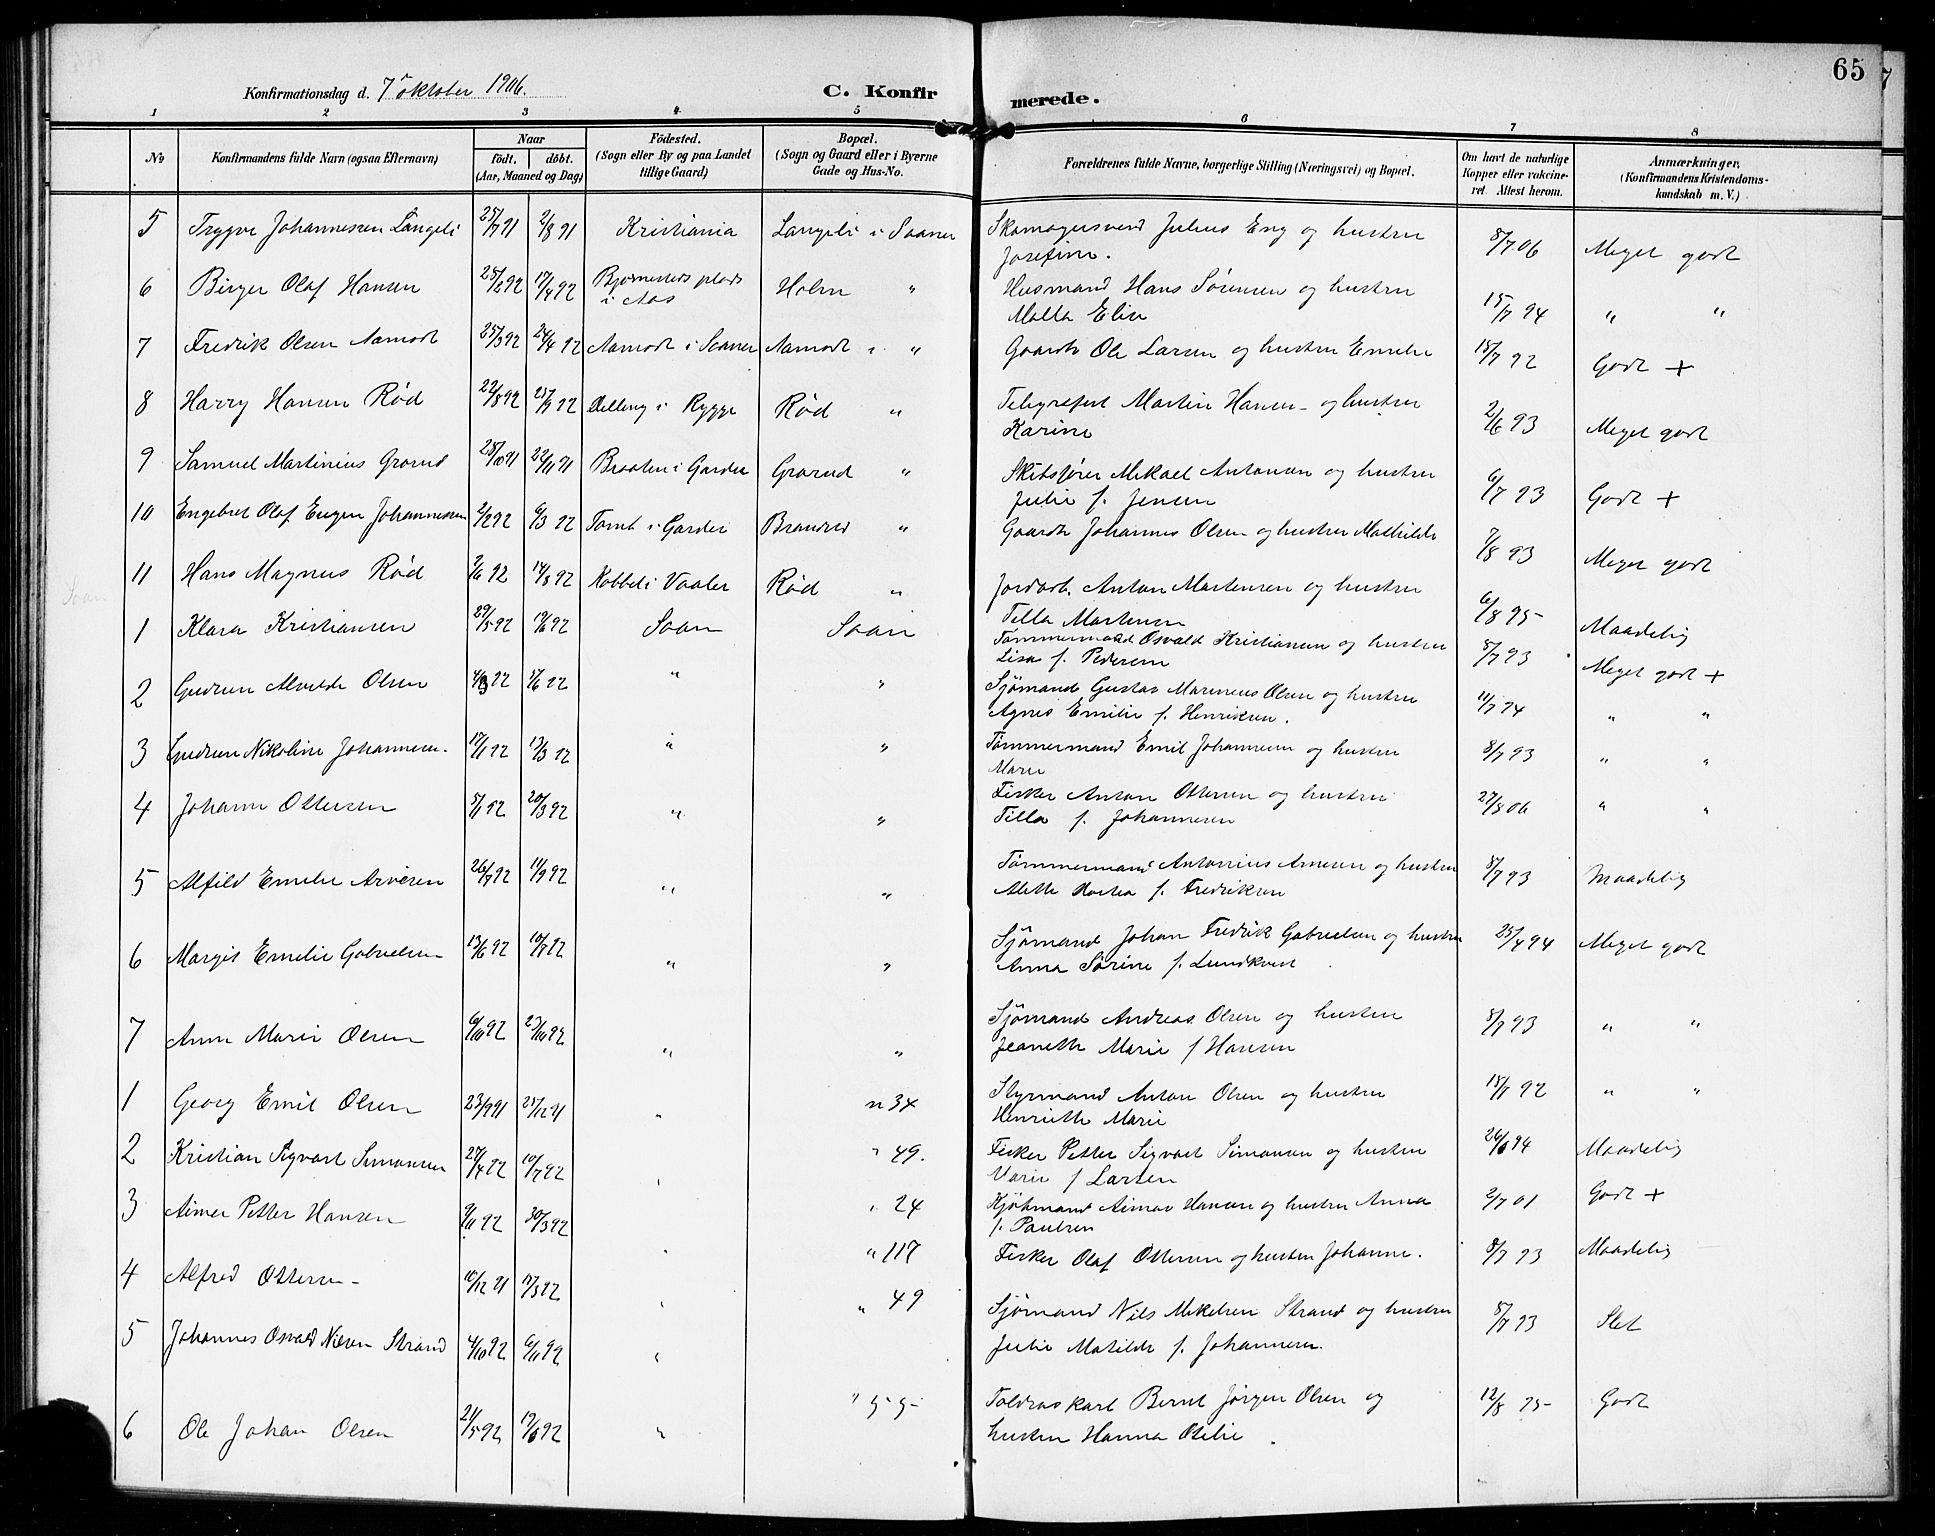 65
Konfirmationsdag d. 7 oktober 1906.
C. Konfirmerede.
1 2 3 4 5 6 7 8
No
Konfirmandens fulde Navn (ogsaa Efternavn)
Naar
født. døbt.
(Aar, Maaned og Dag)
Födested.
(Sogn eller By og paa Landet
tillige Gaard)
Bopæl.
(Sogn og Gaard eller i Byerne
Gade og Hus-No.
Forældrenes fulde Navne, borgerlige Stilling (Næringsvei) og Bopæl.
Om havt de naturlige
Kopper eller vakcine-
ret. Attest herom.
Anmærkninger.
(Konfirmandens Kristendoms-
kundskab m. V.)
5 Trygve Johannessen Langeli 25/7 91 2/8 91 Kristiania Langeli i Saaner Skomagersvend Julius Eng og hustru
Josefine. 8/7 06 Meget godt
6 Birger Olaf Hansen 25/2 92 17/4 92 Bjørnesteds plads
i Aas Holm " Husmand Hans Sørensen og hustru
Malla Elise 15/7 94 " "
7 Fredrik Olsen Aamodt 25/3 92 24/4 92 Aamodt i Saaner Aamodt i " Gaardb Ole Larsen og hustru Emelie 15/7 92 Godt +
8 Harry Hansen Rød 22/8 92 25/9 92 Delleng i Rygge Rød " Telegrafest Martin Hansen og hustru
Karine 2/6 93 Meget godt
9 Samuel Martinius Grorud 28/10 91 22/11 91 Braaten i Garder Grorud " Skibsfører Mikael Antonsen og hustru
Julie f. Jensen 6/7 93 Godt +
10 Engebret Olaf Eugen Johannessen 2/2 92 6/3 92 Tomt i Garder Brandrud " Gaardb Johannes Olsen og hustru Mathilde 7/8 93 Meget godt
11 Hans Magnus Rød 7/6 92 14/8 92 Kobbel i Vaaler Rød " Jordarb. Anton Martensen og hustru
Tilla Martensen 6/8 95 Maadelig
1 Klara Kristiansen 29/5 92 19/6 92 Soon Soon Tømmermand Osvald Kristiansen og hustru
Lisa f. Pedersen 8/7 93 Meget godt +
2 Gudrun Alvilde Olsen 4/3 92 17/6 92 " " Sjømand Gustav Marenius Olsen og hustru
Agnes Emilie f. Henriksen. 11/7 94 " "
3 Gudrun Nikoline Johannesen. 17/1 92 13/3 92 " " Tømmermand Emil Johannesen og hustru
Marie 8/7 93 " "
4 Johanne Ottersen 5/1 92 20/3 92 " " Fisker Anton Ottersen og hustru
Tilla f. Johannesen 27/8 06 " "
5 Alfild Emelie Arnesen 26/7 92 11/9 92 " " Tømmermand Antonius Arnesen og hustru
Alette f. Fredriksen 8/7 93 Maadelig
6 Margit Emilie Gabrielsen 13/6 92 10/7 92 " " Sjømand Johan Fredrik Gabrielsen og hustru
Anna Sørine f. Lundkvist 25/4 94 Meget godt
7 Anna Marie Olsen 6/10 92 23/10 92 " " Sjømand Andreas Olsen og hustru
Jeanette Marie f Hansen 8/7 93 " "
1 Georg Emil Olsen 23/9 91 25/12 91 " " 34 Styrmand Anton Olsen og hustru
Henriette Marie 15/7 92 " "
2 Kristian Sigvart Simonsen 27/4 92 10/7 92 " " 49. Fisker Petter Sigvart Simonsen og hustru
Marie f Larsen 26/6 94 Maadelig
3 Aimar Petter Hansen 9/11 92 30/3 92 " " 24 Kjøbmand Aimar Hansen og hustru Anna
f. Paulsen 2/7 01 Godt +
4 Alfred Ottersen 10/12 91 17/3 92 " " 117 Fisker Olaf Ottersen og hustru Johanne. 8/7 93 Maadelig
5 Johannes Osvald Nilsen Strand 4/10 92 6/11 92 " " 49 Sjømand Nils Mikelsen Strand og hustru
Julie Matilde f. Johannesen. 8/7 93 Slet
6 Ole Johan Olsen 21/5 92 19/6 92 " " 55 Toldraskarl Bernt Jørgen Olsen og
hustru Hanna Otilie. 12/8 95 Godt